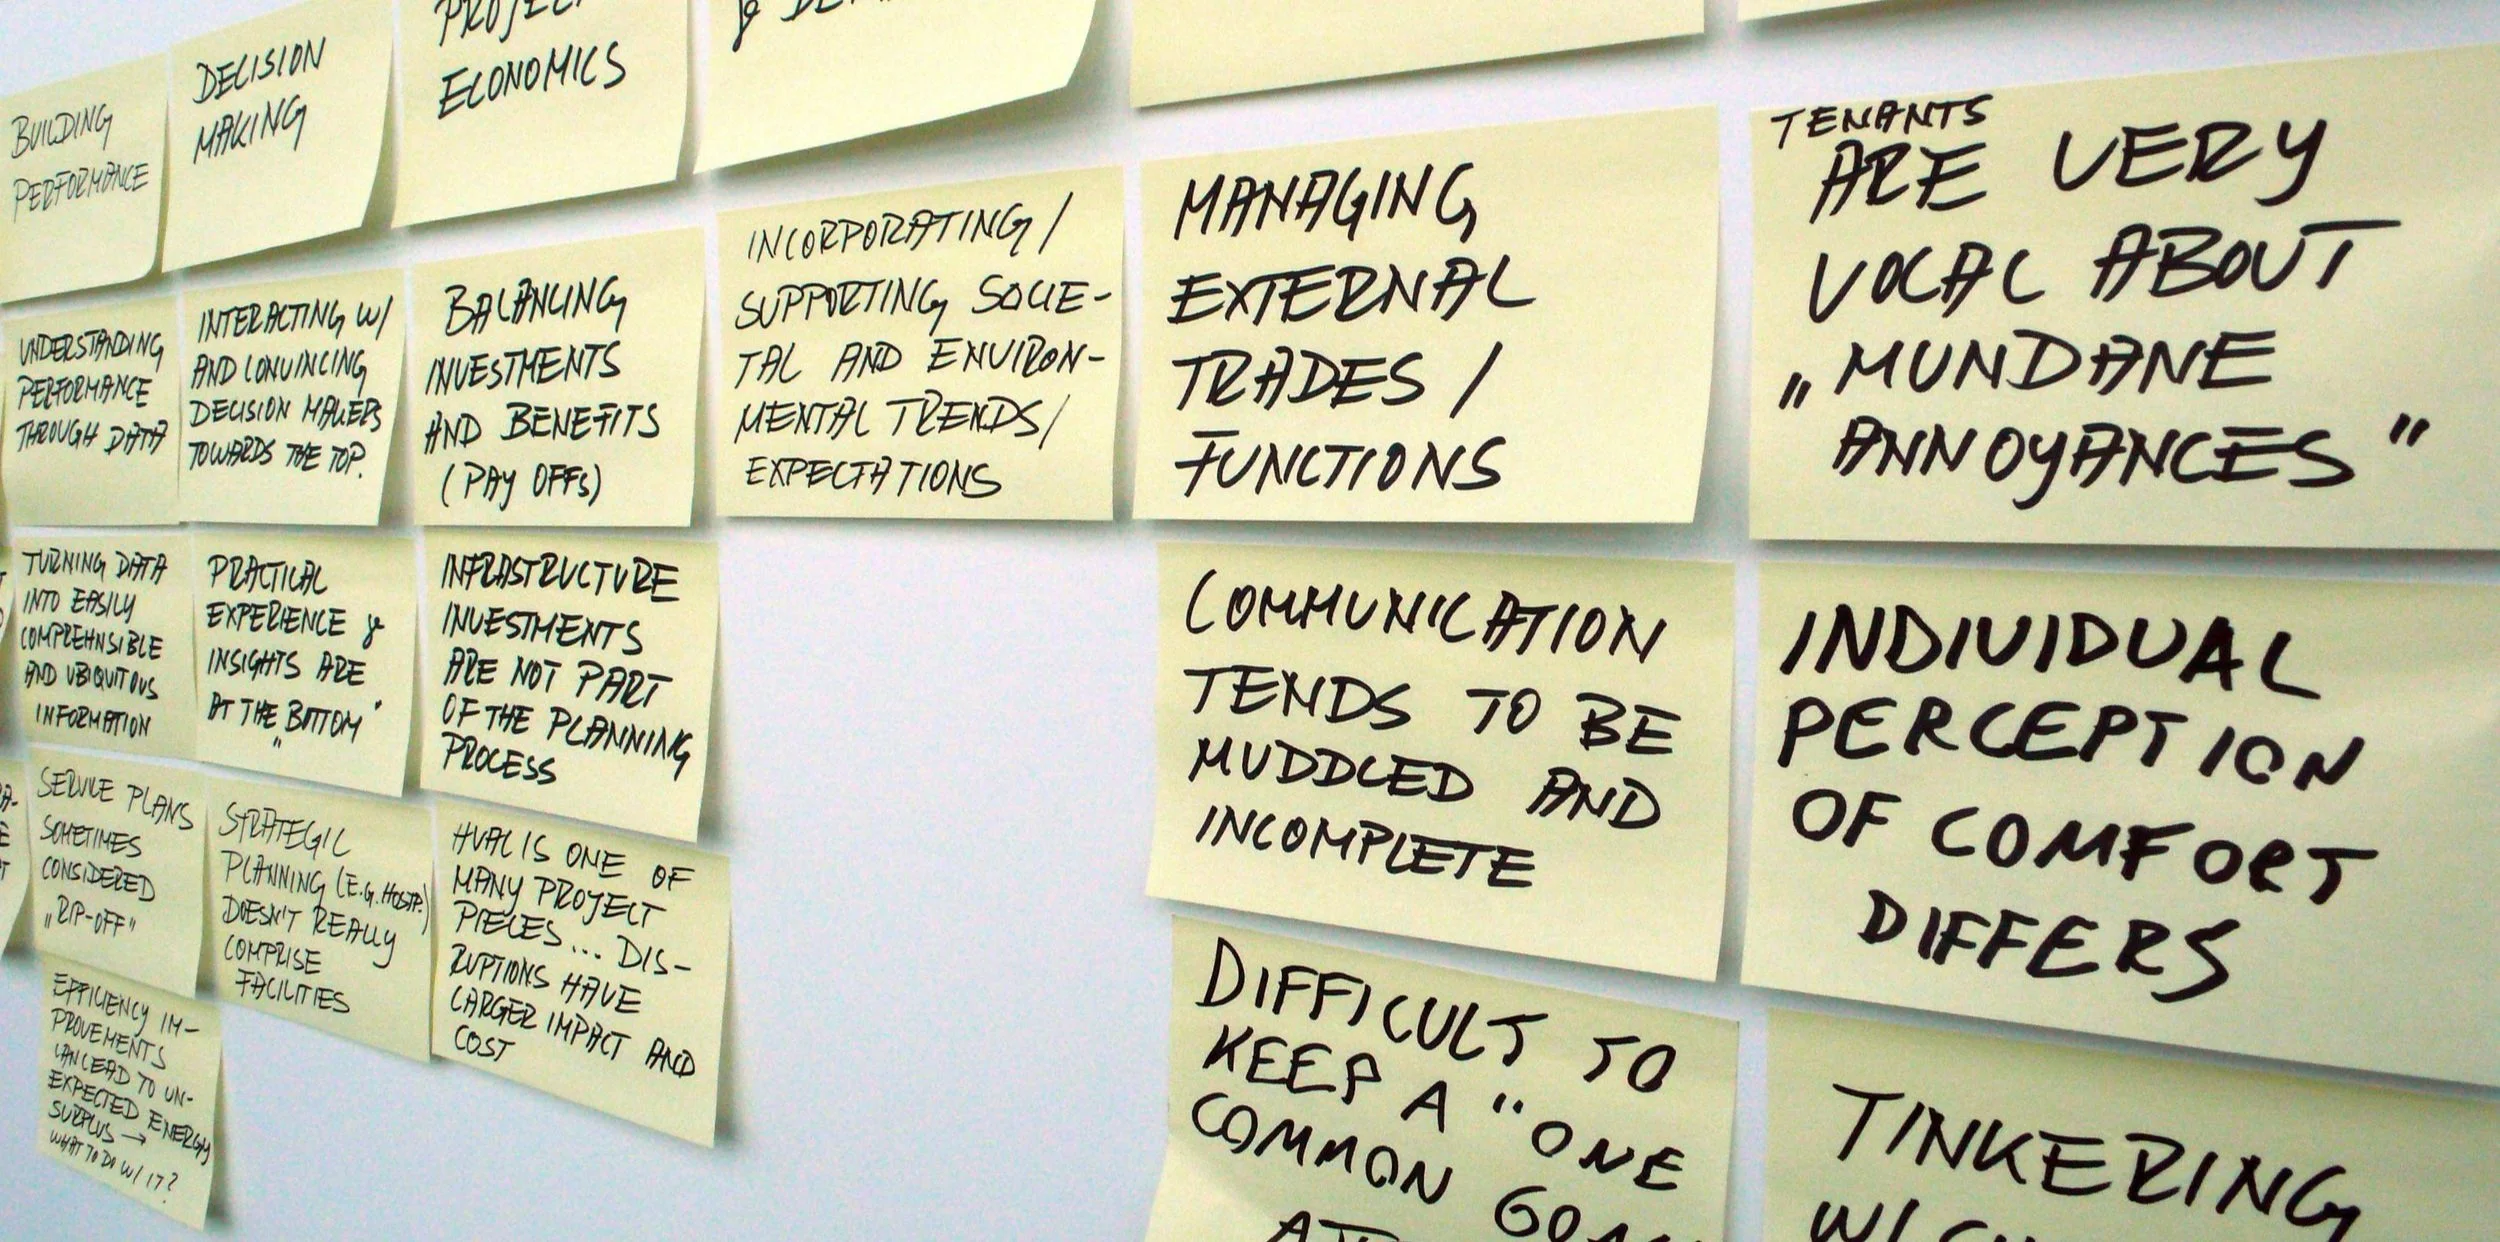 BUILDING
PERFORMANCE
UNDERSTANDING
PERFORMANCE
THROUGH DATA
TURNING DATA
INTO EASILY
COMPREHNSIBLE
AND UBIQUITOUS
INFORMATION
SERVICE PLANS
SOMETIMES
CONSIDERED
„RIP-OFF"
EFFICIENCY IM-
PROVEMENTS
CAN LEAD TO UN-
EXPECTED ENERGY
SURPLUS →
WHAT TO DO W/ IT?
DECISION
MAKING
INTERACTING W/
AND CONVINCING
DECISION MAKERS
TOWARDS THE TOP.
PRACTICAL
EXPERIENCE &
INSIGHTS ARE
AT THE „BOTTOM"
STRATEGIC
PLANNING (E.G. HOSP.)
DOESN'T REALLY
COMPRISE
FACILITIES
PROJECT
ECONOMICS
BALANCING
INVESTMENTS
AND BENEFITS
(PAY OFFS)
INFRASTRUCTURE
INVESTMENTS
ARE NOT PART
OF THE PLANNING
PROCESS
HVAC IS ONE OF
MANY PROJECT
PIECES... DIS-
RUPTIONS HAVE
LARGER IMPACT AND
COST
&
INCORPORATING/
SUPPORTING SOCIE-
TAL AND ENVIRON-
MENTAL TRENDS/
EXPECTATIONS
MANAGING
EXTERNAL
TRADES /
FUNCTIONS
COMMUNICATION
TENDS TO BE
MUDDLED AND
INCOMPLETE
DIFFICULT TO
KEEP A "ONE
COMMON GOAL
TENANTS
ARE VERY
VOCAL ABOUT
„MUNDANE
ANNOYANCES"
INDIVIDUAL
PERCEPTION
OF COMFORT
DIFFERS
TINKERING
W/